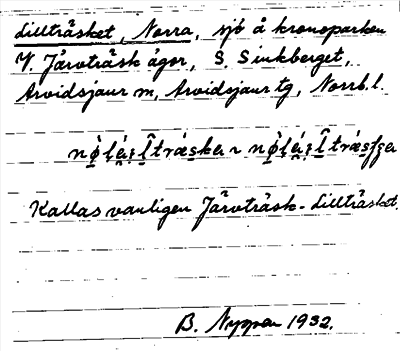 Lillträsket, Norra, sjö å kronoparken
V. Järvträsk ägor, S. Sinkberget,
Arvidsjaur sn, Arvidsjaur tg, Norrb. l.
Kallas vanligen Järvträsk-Lillträsket.
B. Nyman 1932.